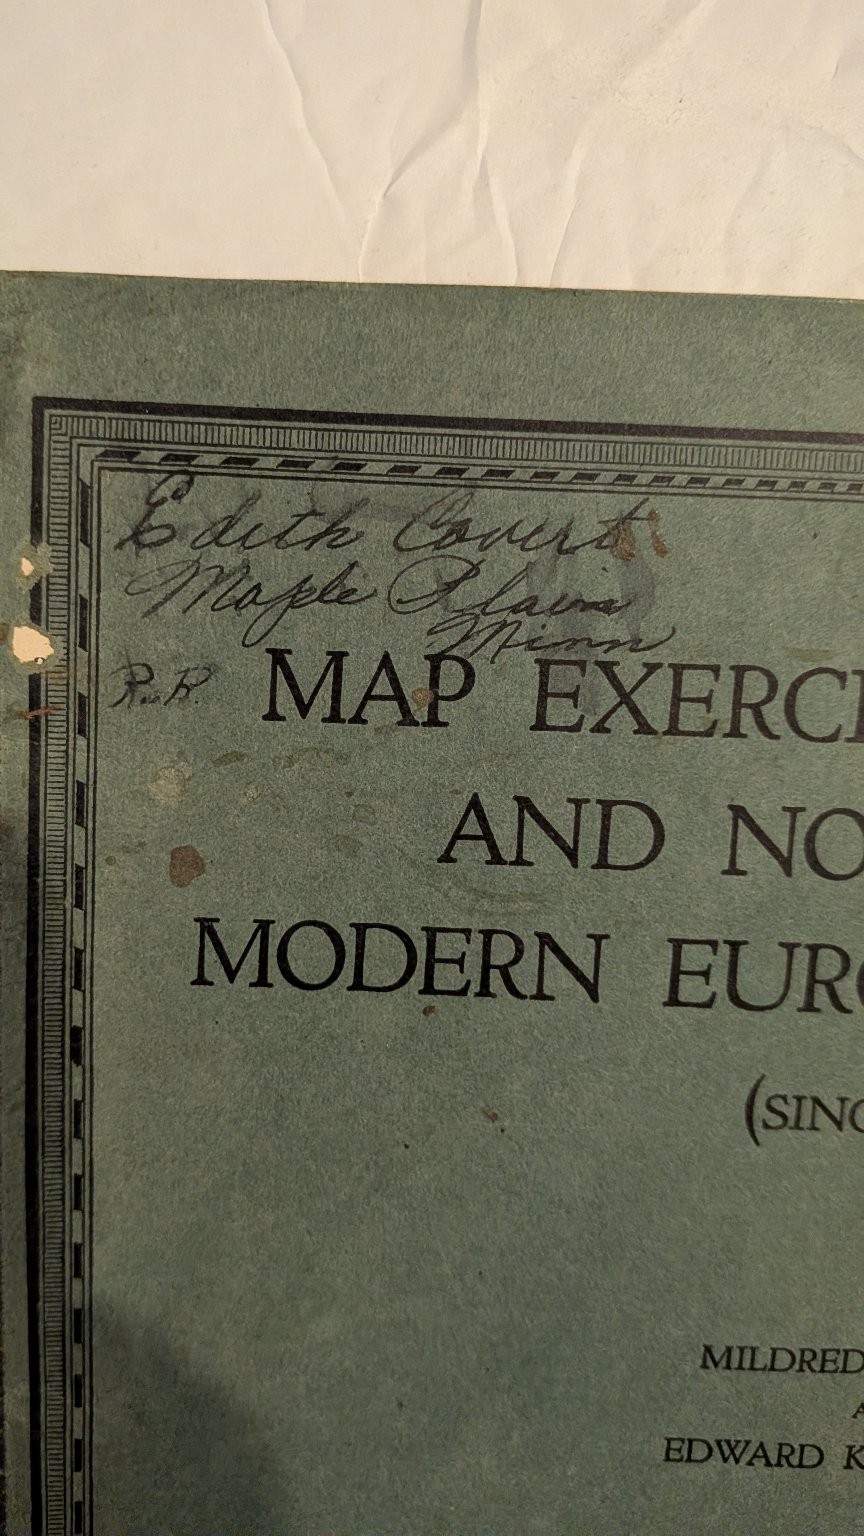 Edith Covert
Maple Plain
Minn
R.R.
MAP EXERCI
AND NO
MODERN EURO
(SING
MILDRED
A
EDWARD K